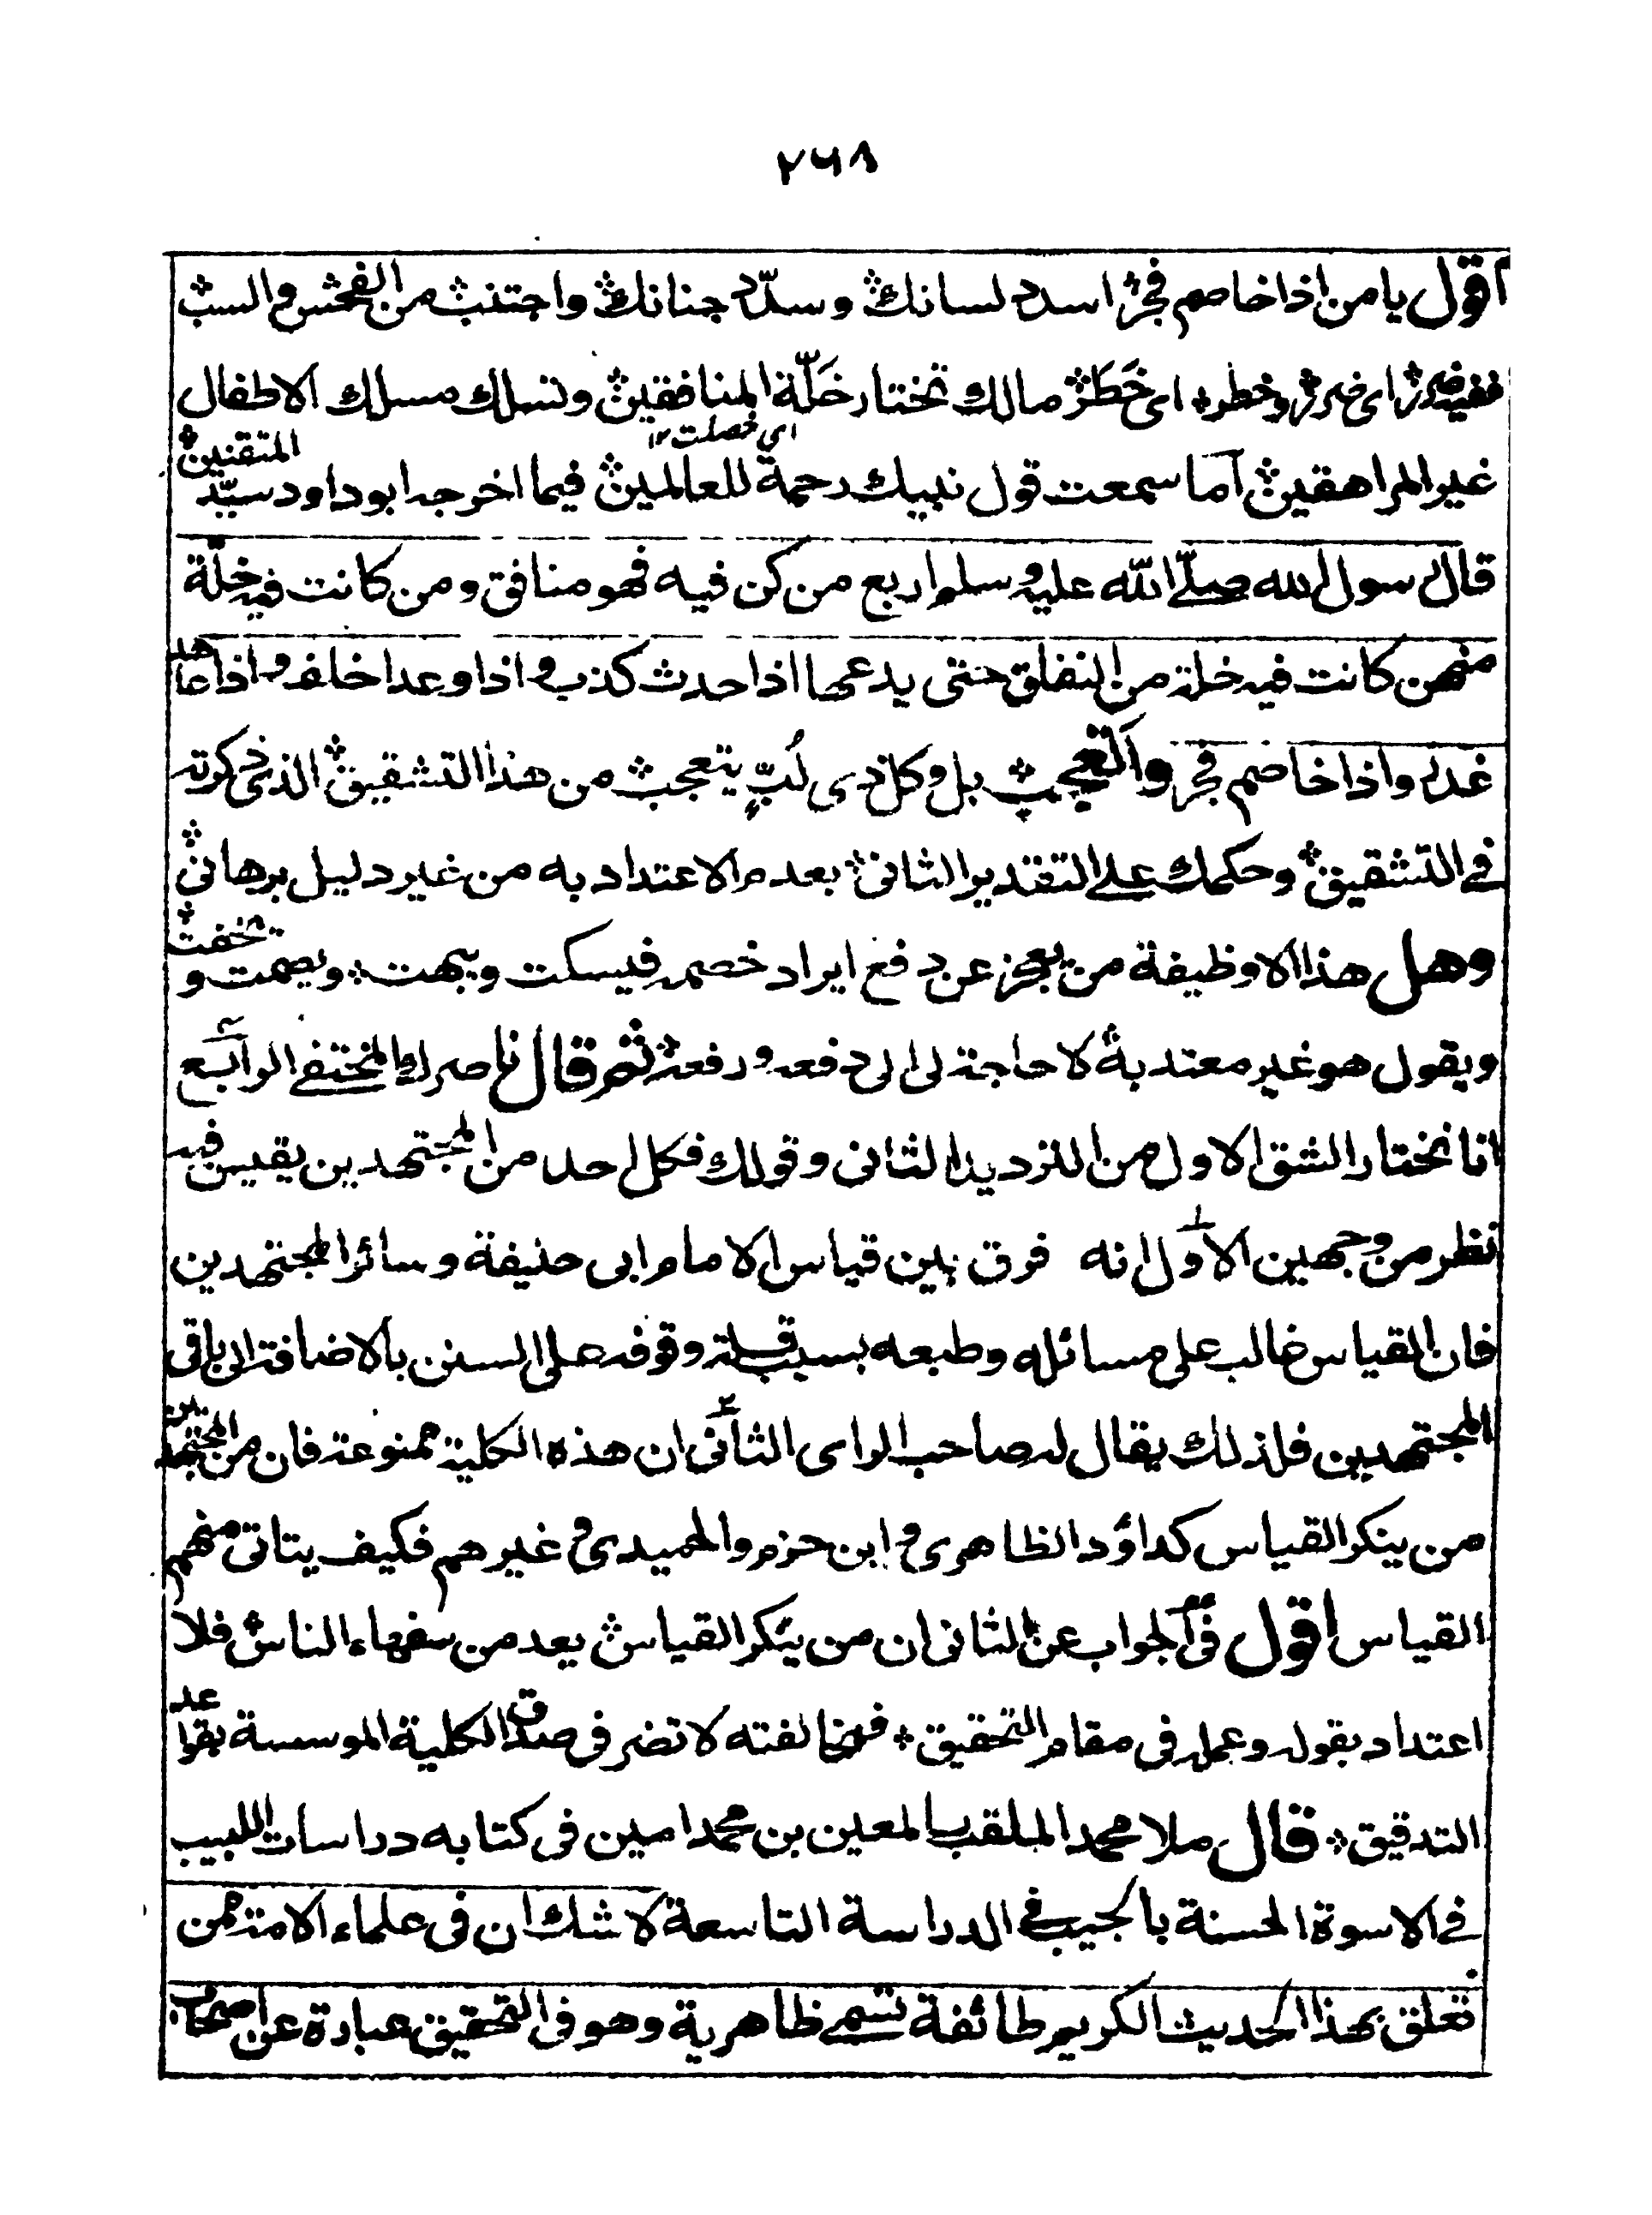 ٢٦٨
اقول يا من اذا خاصم فجر اسدد لسانك وسدّد جنانك واجتنب من الفحش والسب
ففيه ضرر اى ضرر وخطر اى خَطَر مالك تختار خَلّة المنافقين وتسلك مسلك الاطفال
اى خصلت ١٢
غير المراهقين اما سمعت قول نبيك رحمة للعالمين فيما اخرجه ابو داود سيّد المتقنين
قال رسول الله صلّے الله عليه وسلم اربع من كن فيه فهو منافق ومن كانت فيه خلّة
منهن كانت فيه خلة من النفاق حتى يدعها اذا حدث كذب واذا وعد اخلف واذا عاهد
غدر واذا خاصم فجر والعجب بل وكل ذى لُبّ يتعجب من هذا التشقيق الذى ذكرته
فے التشقيق وحكمك علے التقدير الثانى بعدم الاعتداد به من غير دليل برهانى
وهل هذا الا وظيفة من يعجز عن دفع ايراد خصمه فيسكت ويبهت ويصمت ويخفت
ويقول هو غير معتد به لا حاجة لى الى دفعه ورفعه ثم قال ناصرك المختفے الرابع
انا نختار الشق الاول من الترديد الثانى وقولك فكل احد من المجتهدين يقيس فيه
نظر من وجهين الاول انه فرق بين قياس الامام ابى حنيفة وسائر المجتهدين
فان القياس غالب على مسائله وطبعه بسبب قلة وقوفه على السنن بالاضافة الى باقى
المجتهدين فلذلك يقال له صاحب الراى الثانى ان هذه الكلية ممنوعة فان من المجتهدين
من ينكر القياس كداؤد الظاهرى وابن حزم والحميدى وغيرهم فكيف يتاتى منهم
القياس اقول فى الجواب عن الثانى ان من ينكر القياس يعد من سفهاء الناس فلا
اعتداد بقوله وعمله فى مقام التحقيق فمخالفته لا تضر فى صدق الكلية الموسسة بقواعد
التدقيق قال ملا محمد الملقب بالمعين بن محمد امين فى كتابه دراسات اللبيب
فے الاسوة الحسنة بالحبيب فے الدراسة التاسعة لا شك ان فى علماء الامة ممن
تعلق بهذا الحديث الكريم طائفة تسمے ظاهرية وهو فى التحقيق عبارة عن اصحاب